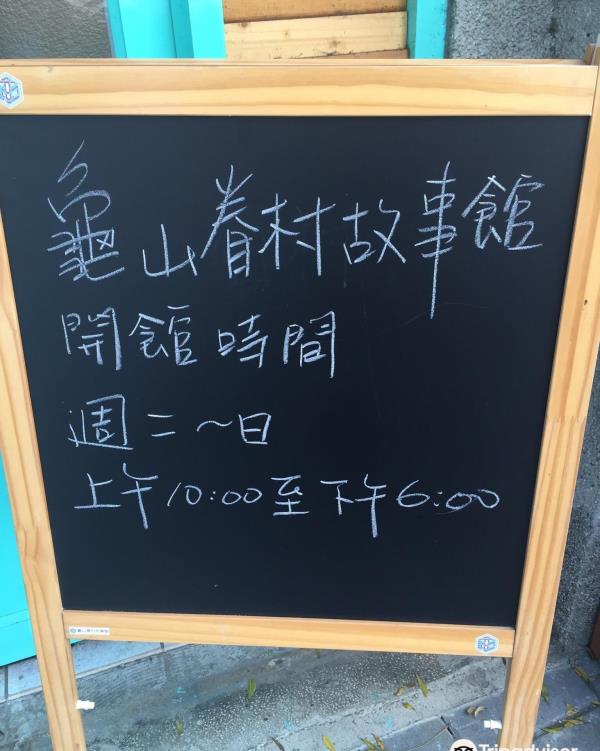 龜山眷村故事館
開館時間
週二～日
上午10:00至下午6:00
Tripadvisor